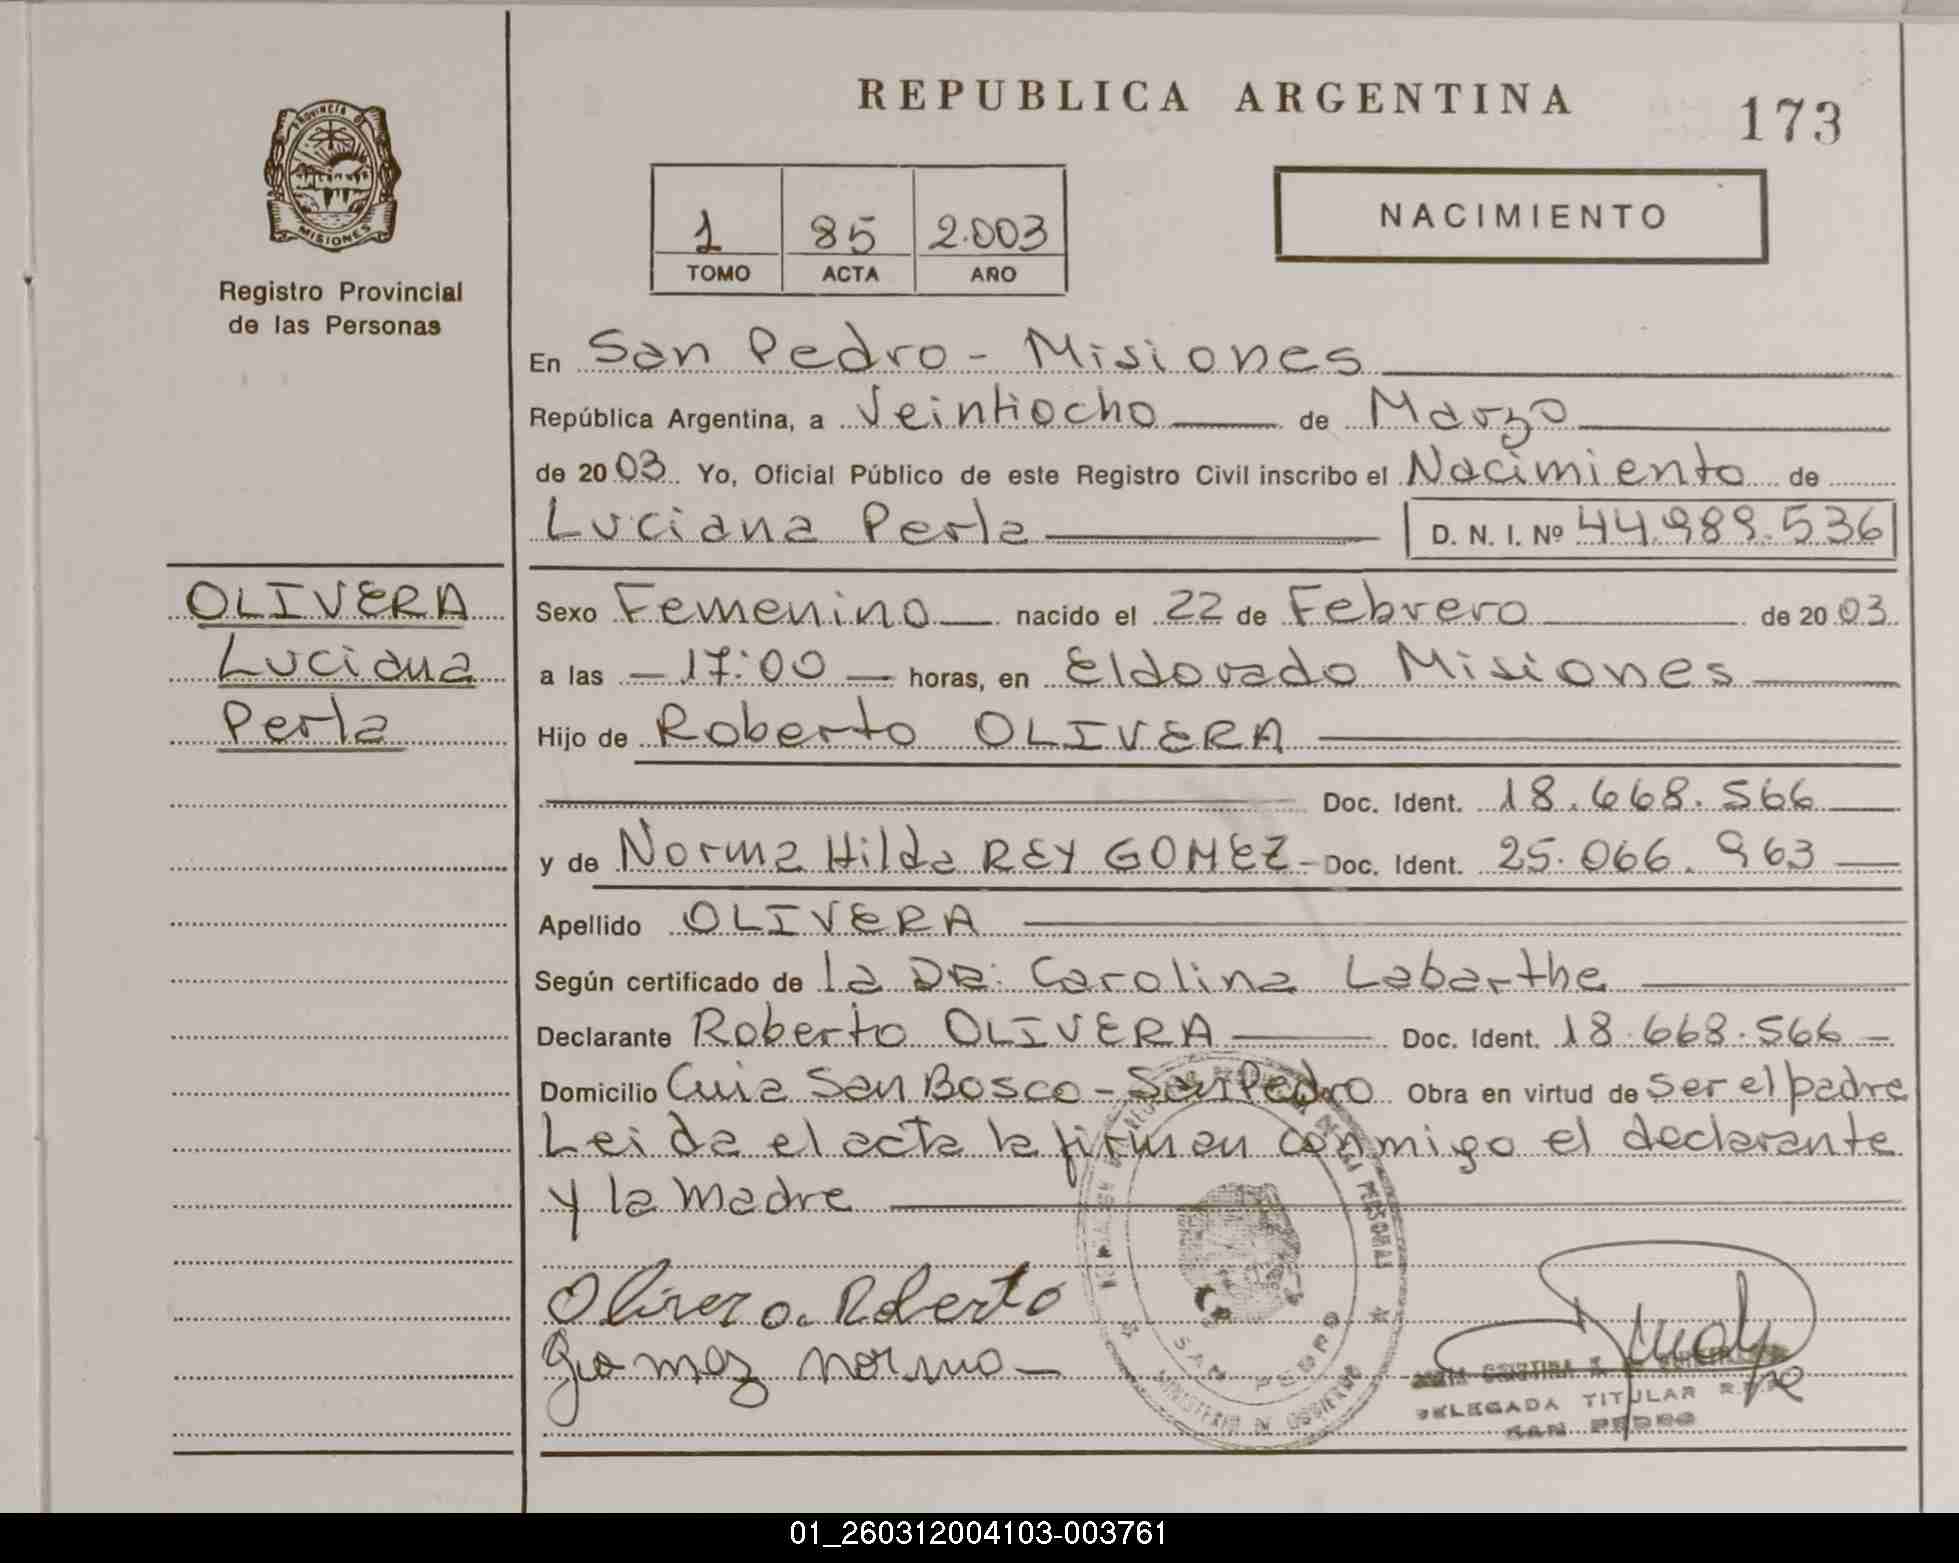 REPUBLICA ARGENTINA
173
PROVINCIA D
MISIONES
Registro Provincial
de las Personas
1 85 2.003
TOMO ACTA AÑO
NACIMIENTO
En San Pedro - Misiones
República Argentina, a Veintiocho de Marzo
de 2003 Yo, Oficial Público de este Registro Civil inscribo el Nacimiento de
Luciana Perla D. N. I. Nº 44.989.536
OLIVERA
Luciana
Perla
Sexo Femenino nacido el 22 de Febrero de 2003
a las - 17:00 - horas, en Eldorado Misiones
Hijo de Roberto OLIVERA
Doc. Ident. 18.668.566
y de Norma Hilda REY GOMEZ - Doc. Ident. 25.066.963
Apellido OLIVERA
Según certificado de la DRA: Carolina Labarthe
Declarante Roberto OLIVERA Doc. Ident. 18.668.566 -
Domicilio Cuia San Bosco - San Pedro Obra en virtud de ser el padre
Leida el acta la firman conmigo el declarante
y la madre
Olivera Roberto
gomez norma -
SAN PEDRO
DELEGADA TITULAR R.P.P.
SAN PEDRO
01_260312004103-003761